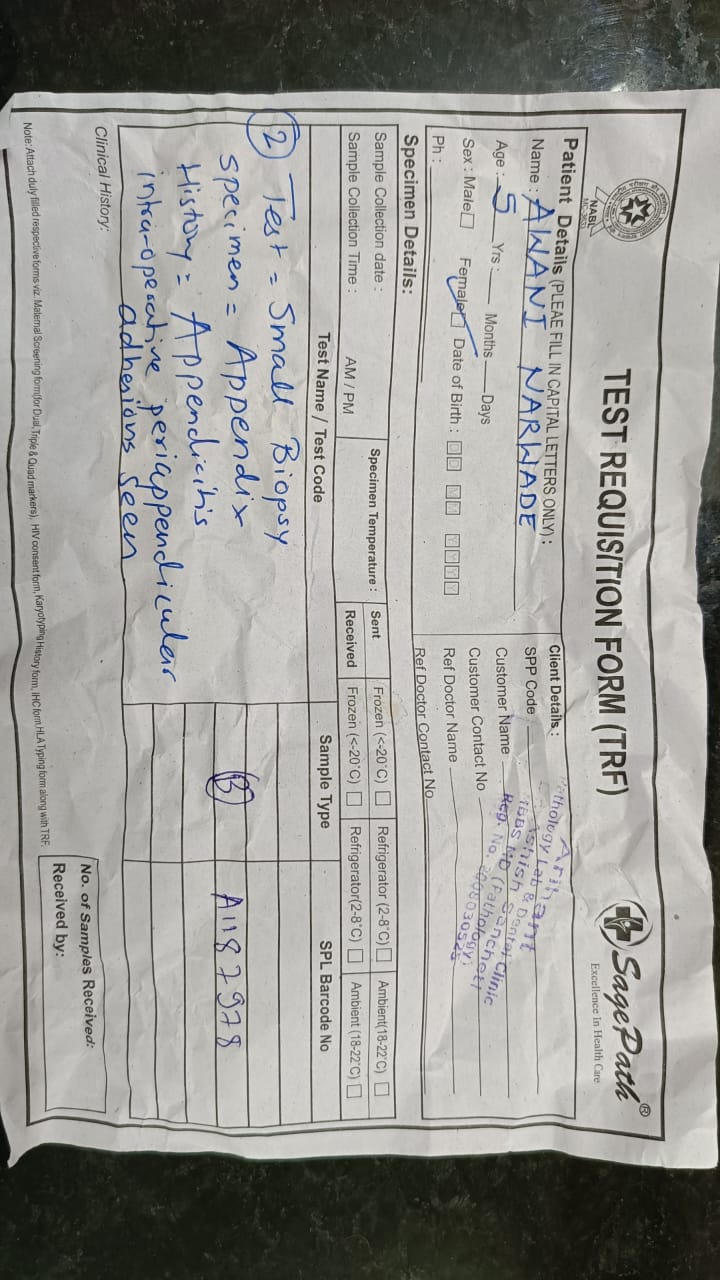 NABL
TEST REQUISITION FORM (TRF)
SagePath®
Excellence In Health Care
Patient Details (PLEAE FILL IN CAPITAL LETTERS ONLY) :
Name : AWANI NARWADE
Age : 5 Yrs : Months Days
Sex : Male Female Date of Birth : DD MM YYYY
Ph :
Client Details :
SPP Code
Customer Name
Customer Contact No
Ref Doctor Name
Ref Doctor Contact No
Pathology Lab & Dental Clinic
MBBS MD (Pathology)
Reg. No.
Specimen Details:
Sample Collection date : Specimen Temperature : Sent Frozen (<-20°C) Refrigerator (2-8°C) Ambient(18-22°C)
Sample Collection Time : AM / PM Received Frozen (<-20°C) Refrigerator(2-8°C) Ambient (18-22°C)
Test Name / Test Code Sample Type SPL Barcode No
2 Test = Small Biopsy
Specimen = Appendix B A1187978
History = Appendicitis
intra-operative periappendicular
adhesions seen
Clinical History:
No. of Samples Received:
Received by:
Note: Attach duly filled respective forms viz. Maternal Screening form(for Dual, Triple & Quad markers), HIV consent form, Karyotyping History form, IHC form, HLA Typing form along with TRF.